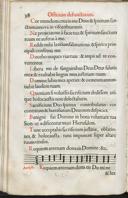 38 Officium defunctorum.
Cor mundum crea in me Deus: & spiritum
Ne proiicias me a facie tua: & spiritum sanctum
tuum ne auferas a me.
Redde mihi letitiam salutaris tui: & spiritu prin
cipali confirma me.
Docebo iniquos vias tuas: & impii ad te con
vertentur.
Libera me de sanguinibus Deus Deus salutis
mee: & exultabit lingua mea iustitiam tuam.
Domine labia mea aperies: & os meum annuntiabit
laudem tuam.
Quoniam si voluisses sacrificium dedissem uti
que: holocaustis non delectaberis.
Sacrificium Deo spiritus contribulatus: cor
contritum & humiliatum Deus non despicies.
Benigne fac Domine in bona voluntate tua
Sion: ut edificentur muri Hierusalem.
Tunc acceptabis sacrificium iustitie, oblatio
nes, & holocausta: tunc imponent super altare
tuum vitulos.
Requiem eternam dona eis Domine: &c.
Requiem eternam dona eis Domine
& lux